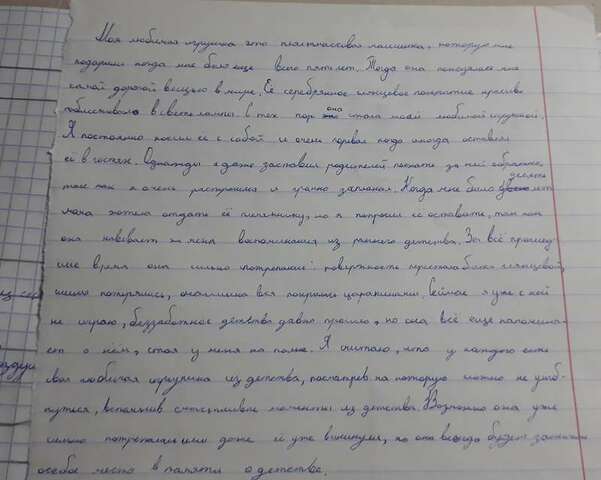 Моя любимая игрушка это пластмассовая машинка, которую мне
подарили когда мне было еще всего пять лет. Тогда она показалась мне
самой дорогой вещью в мире. Её серебряное глянцевое покрытие красиво
поблескивало в свете лампы. С тех пор она стала моей любимой игрушкой.
Я постоянно носил ее с собой и очень горевал когда иногда оставлял
её в гостях. Однажды я даже заставил родителей поехать за ней обратно,
так как я очень расстроился и громко заплакал. Когда мне было десять лет
мама хотела отдать её племяннику, но я попросил ее оставить, так как
она навевает на меня воспоминания из раннего детства. За всё прошед-
шее время она сильно потрепалась: поверхность перестала быть глянцевой,
потерялись, она вся покрылась царапинами. Сейчас я уже с ней
не играю, беззаботное детство давно прошло, но она всё еще напомина-
ет о нём, стоя у меня на полке. Я считаю, что у каждого есть
своя любимая игрушка из детства, посмотрев на которую можно не улыб-
нуться, вспомнив счастливые моменты из детства. Возможно она уже
сильно потрепалась или даже её уже выкинули, но она всегда будет занимать
особое место в памяти о детстве.